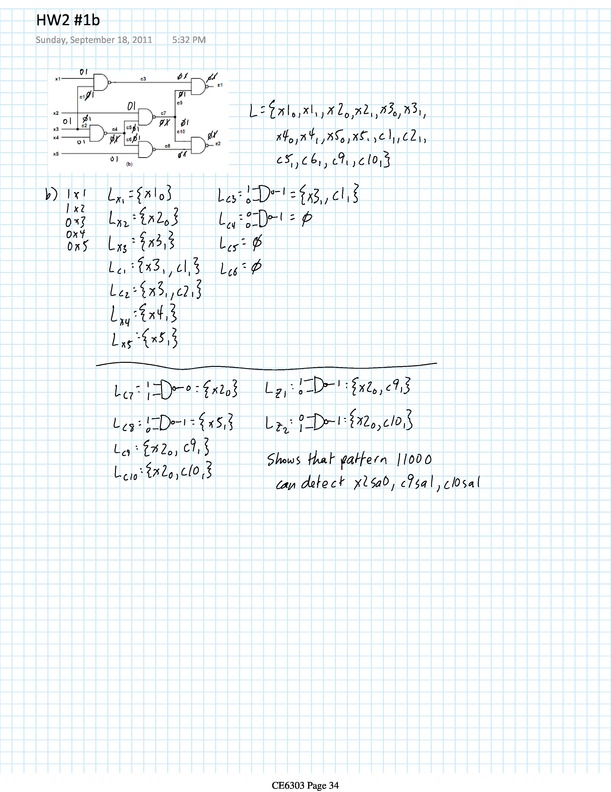 HW2 #1b
Sunday, September 18, 2011 5:32 PM
L={x1₀,x1₁,x2₀,x2₁,x3₀,x3₁,
x4₀,x4₁,x5₀,x5₁,c1₁,c2₁,
c5₁,c6₁,c9₁,c10₁}
b) 1 x1
1 x2
0 x3
0 x4
0 x5
Lx1={x1₀}
Lx2={x2₀}
Lx3={x3₁}
Lc1={x3₁,c1₁}
Lc2={x3₁,c2₁}
Lx4={x4₁}
Lx5={x5₁}
Lc3: 1 0 1 = {x3₁,c1₁}
Lc4: 0 0 1 = ∅
Lc5= ∅
Lc6= ∅
Lc7= 1 1 0 = {x20}
Lc8: 1 0 1 = {x5₁}
Lc9: {x20, c9₁}
Lc10:{x20,c10₁}
Lz1: 1 0 1:{x20,c9₁}
Lz2: 0 1 1:{x20,c10₁}
Shows that pattern 11000
can detect x2sa0, c9sa1, c10sa1
(b)
CE6303 Page 34